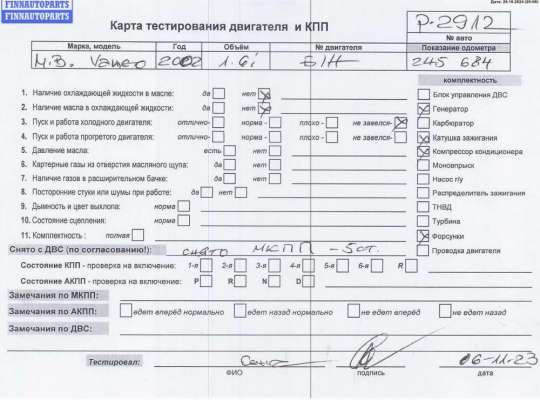 FINNAUTOPARTS
FINNAUTOPARTS
Карта тестирования двигателя и КПП
P-2912
№ авто
Марка, модель Год Объём № двигателя Показание одометра
M.B. Vaneo 2002 1.6i Б/Н 245 684
комплектность
1. Наличие охлаждающей жидкости в масле: да нет Блок управления ДВС
2. Наличие масла в охлаждающей жидкости: да нет Генератор
3. Пуск и работа холодного двигателя: отлично- норма - плохо - не завелся- Карбюратор
4. Пуск и работа прогретого двигателя: отлично- норма - плохо - не завелся- Катушка зажигания
5. Давление масла: есть нет Компрессор кондиционера
6. Картерные газы из отверстия масляного щупа: да нет Моновпрыск
7. Наличие газов в расширительном бачке: да нет Насос г/у
8. Посторонние стуки или шумы при работе: да нет Распределитель зажигания
9. Дымность и цвет выхлопа: норма ТНВД
10. Состояние сцепления: норма Турбина
11. Комплектность : полная Форсунки
Снято с ДВС (по согласованию!): снято МКПП - 5ст. Проводка двигателя
Состояние КПП - проверка на включение: 1-я 2-я 3-я 4-я 5-я 6-я R
Состояние АКПП - проверка на включение: P R N D
Замечания по МКПП:
Замечания по АКПП: едет вперёд нормально едет назад нормально не едет вперёд не едет назад
Замечания по ДВС:
Тестировал: 06-11-23
ФИО подпись дата